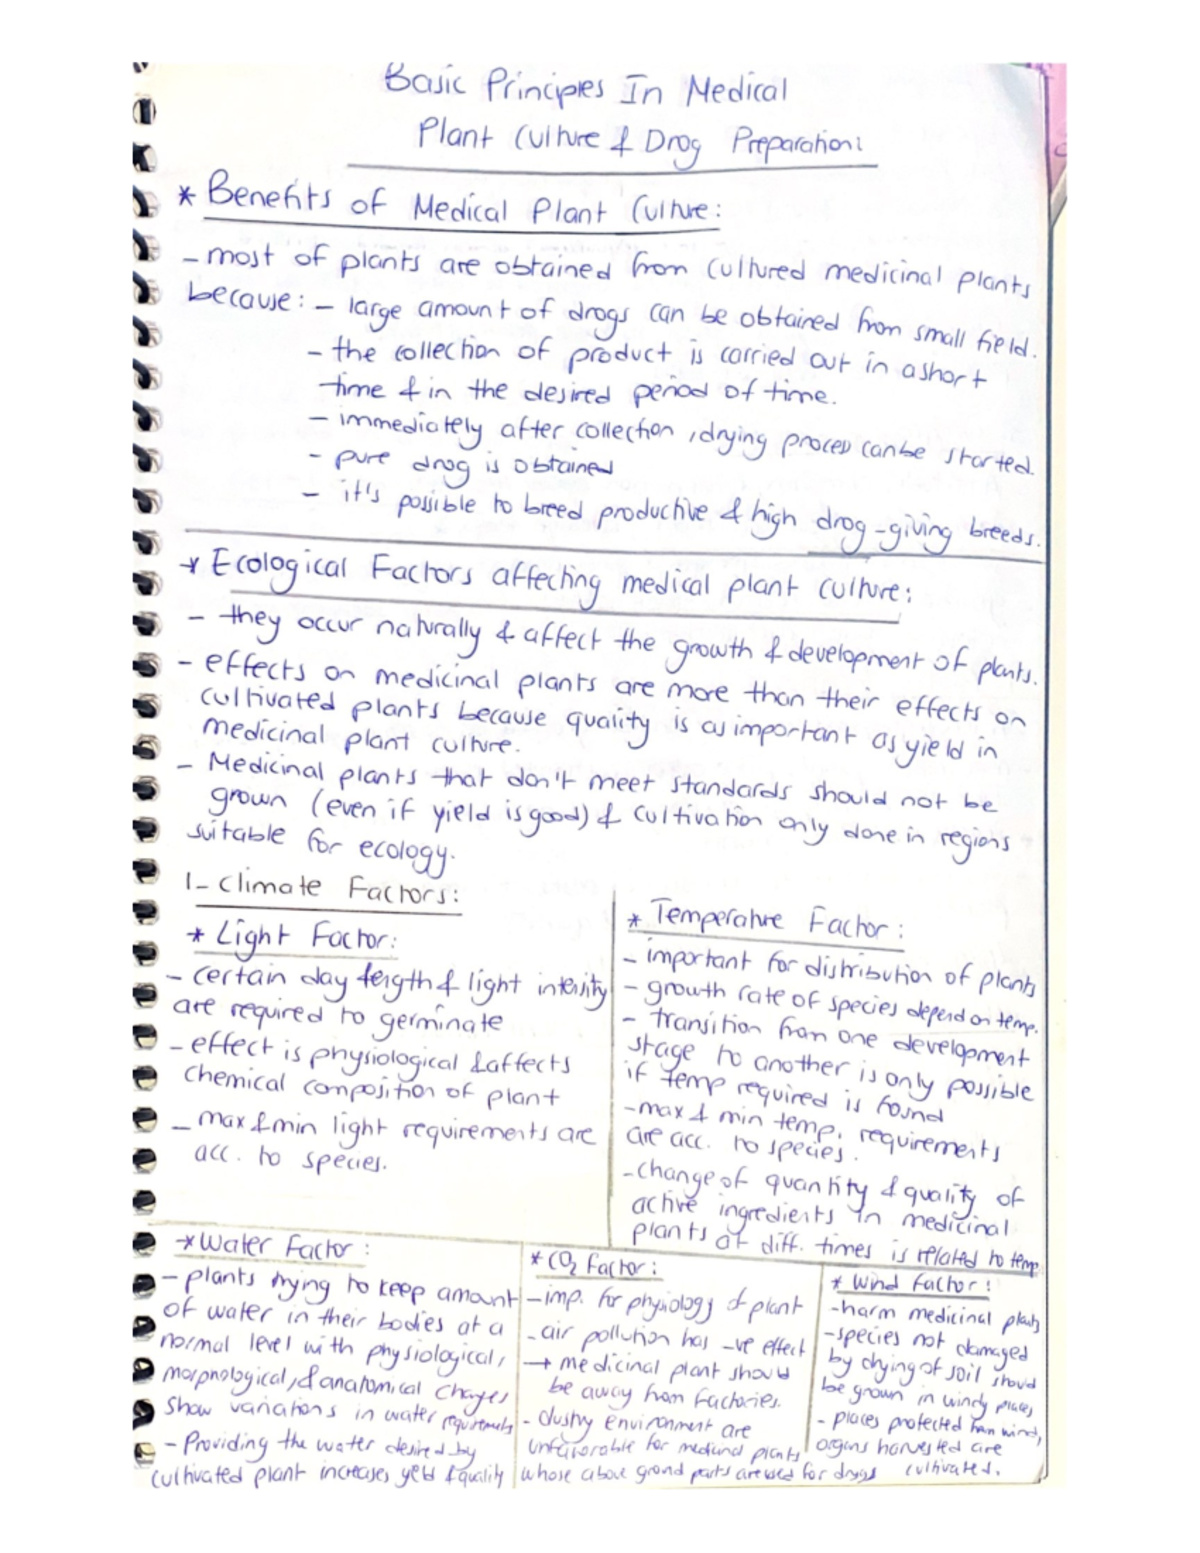 Basic Principles In Medical
Plant Culture & Drog Preparation:
* Benefits of Medical Plant Culture:
- most of plants are obtained from cultured medicinal plants
because: - large amount of drogs can be obtained from small field.
- the collection of product is carried out in a short
time & in the desired period of time.
- immediately after collection, drying proces can be started.
- pure drog is obtained
- it's possible to breed productive & high drog-giving breeds.
* Ecological Factors affecting medical plant culture:
- they occur naturally & affect the growth & development of plants.
- effects on medicinal plants are more than their effects on
cultivated plants because quality is as important as yield in
medicinal plant culture.
- Medicinal plants that don't meet standards should not be
grown (even if yield is good) & cultivation only done in regions
suitable for ecology.
1- Climate Factors:
* Light Factor:
- certain day length & light intensity
are required to germinate
- effect is physiological & affects
chemical composition of plant
- max & min light requirements are
acc. to species.
* Temperature Factor:
- important for distribution of plants
- growth rate of species depend on temp.
- transition from one development
stage to another is only possible
if temp required is found
- max & min temp. requirements
are acc. to species.
- change of quantity & quality of
active ingredients in medicinal
plants at diff. times is related to temp
* Water Factor:
- plants trying to keep amount
of water in their bodies at a
normal level with physiological,
morpnological, & anatomical changes
show variations in water requirements
- Providing the water desired by
cultivated plant increases yeld & quality
* CO2 Factor:
- imp. for physiology of plant
- air pollution has -ve effect
→ medicinal plant should
be away from factories.
- dusty environment are
unfavorable for medicinal plants
whose above grond parts are used for drogs
* Wind Factor:
- harm medicinal plants
- species not damaged
by drying of soil should
be grown in windy places
- places protected from wind,
organs harvested are
cultivated.